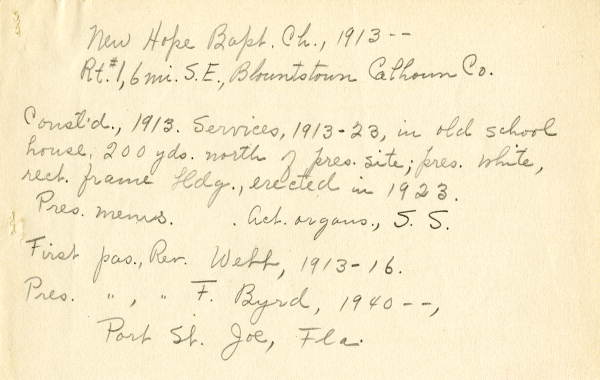 New Hope Bapt. Ch., 1913 --
Rt. #1, 6 mi. S.E., Blountstown Calhoun Co.
Const'd., 1913. Services, 1913-23, in old school
house, 200 yds. north of pres. site; pres. white,
rect. frame bldg., erected in 1923.
Pres. mems. . Act. organs., S. S.
First pas., Rev. Webb, 1913-16.
Pres. " , " F. Byrd, 1940 --,
Port St. Joe, Fla.